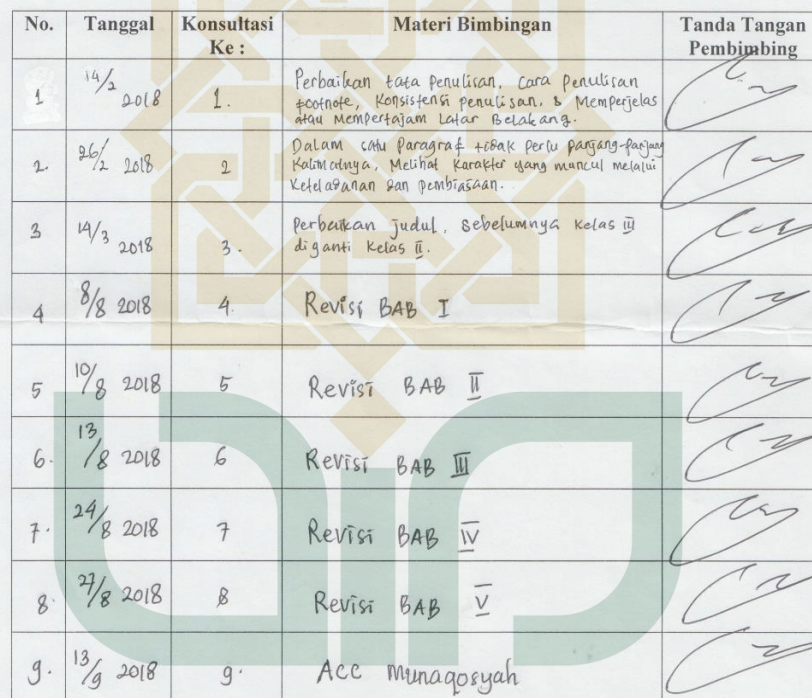 No. Tanggal Konsultasi Ke : Materi Bimbingan Tanda Tangan Pembimbing
1 14/2 2018 1. Perbaikan tata penulisan, Cara Penulisan
footnote, Konsistensi penulisan, & Memperjelas
atau Mempertajam Latar Belakang.
2. 26/2 2018 2 Dalam satu Paragraf tidak perlu panjang-panjang
Kalimatnya, Melihat Karakter yang muncul melalui
Keteladanan dan pembiasaan.
3 14/3 2018 3. Perbaikan judul, sebelumnya Kelas III
diganti Kelas II.
4 8/8 2018 4. Revisi BAB I
5 10/8 2018 5 Revisi BAB II
6. 13/8 2018 6 Revisi BAB III
7. 24/8 2018 7 Revisi BAB IV
8. 27/8 2018 8 Revisi BAB V
9. 13/9 2018 9. Acc Munaqosyah